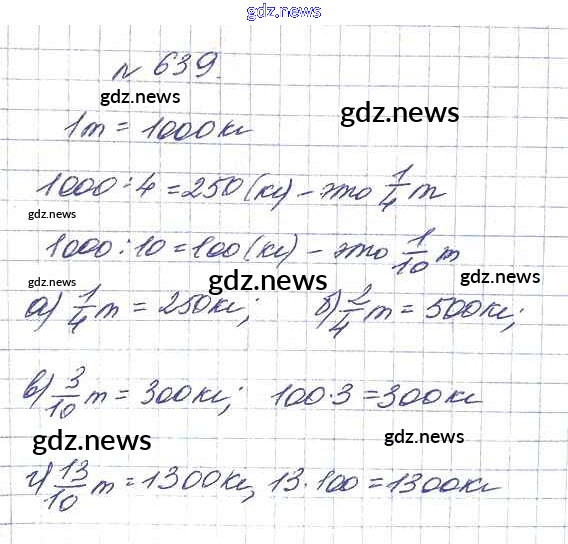 gdz.news
№ 639.
gdz.news
gdz.news
1т = 1000кг
1000 : 4 = 250 (кг) - это 1/4 т
gdz.news
1000 : 10 = 100 (кг) - это 1/10 т
gdz.news gdz.news gdz.news
а) 1/4 т = 250кг; б) 2/4 т = 500кг;
в) 3/10 т = 300кг; 100 · 3 = 300кг
gdz.news gdz.news
г) 13/10 т = 1300кг, 13 · 100 = 1300кг
gdz.news